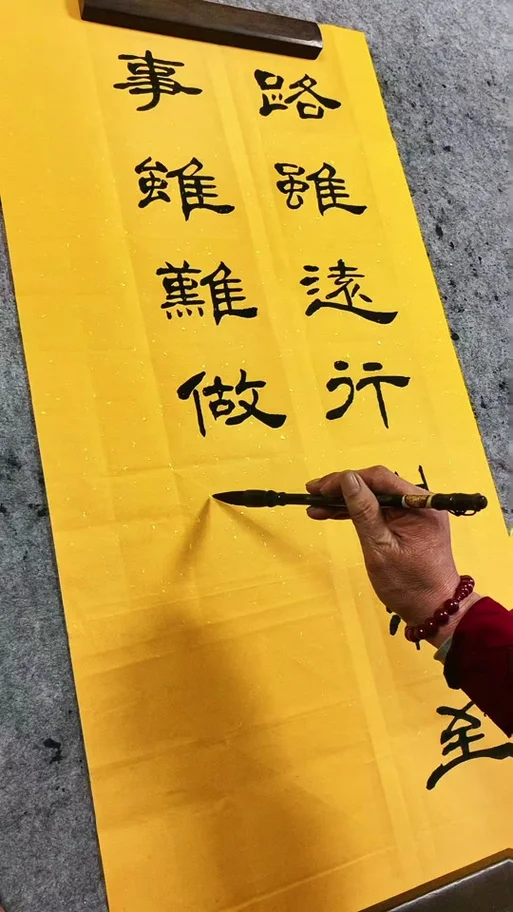 路雖遠行至
事雖難做